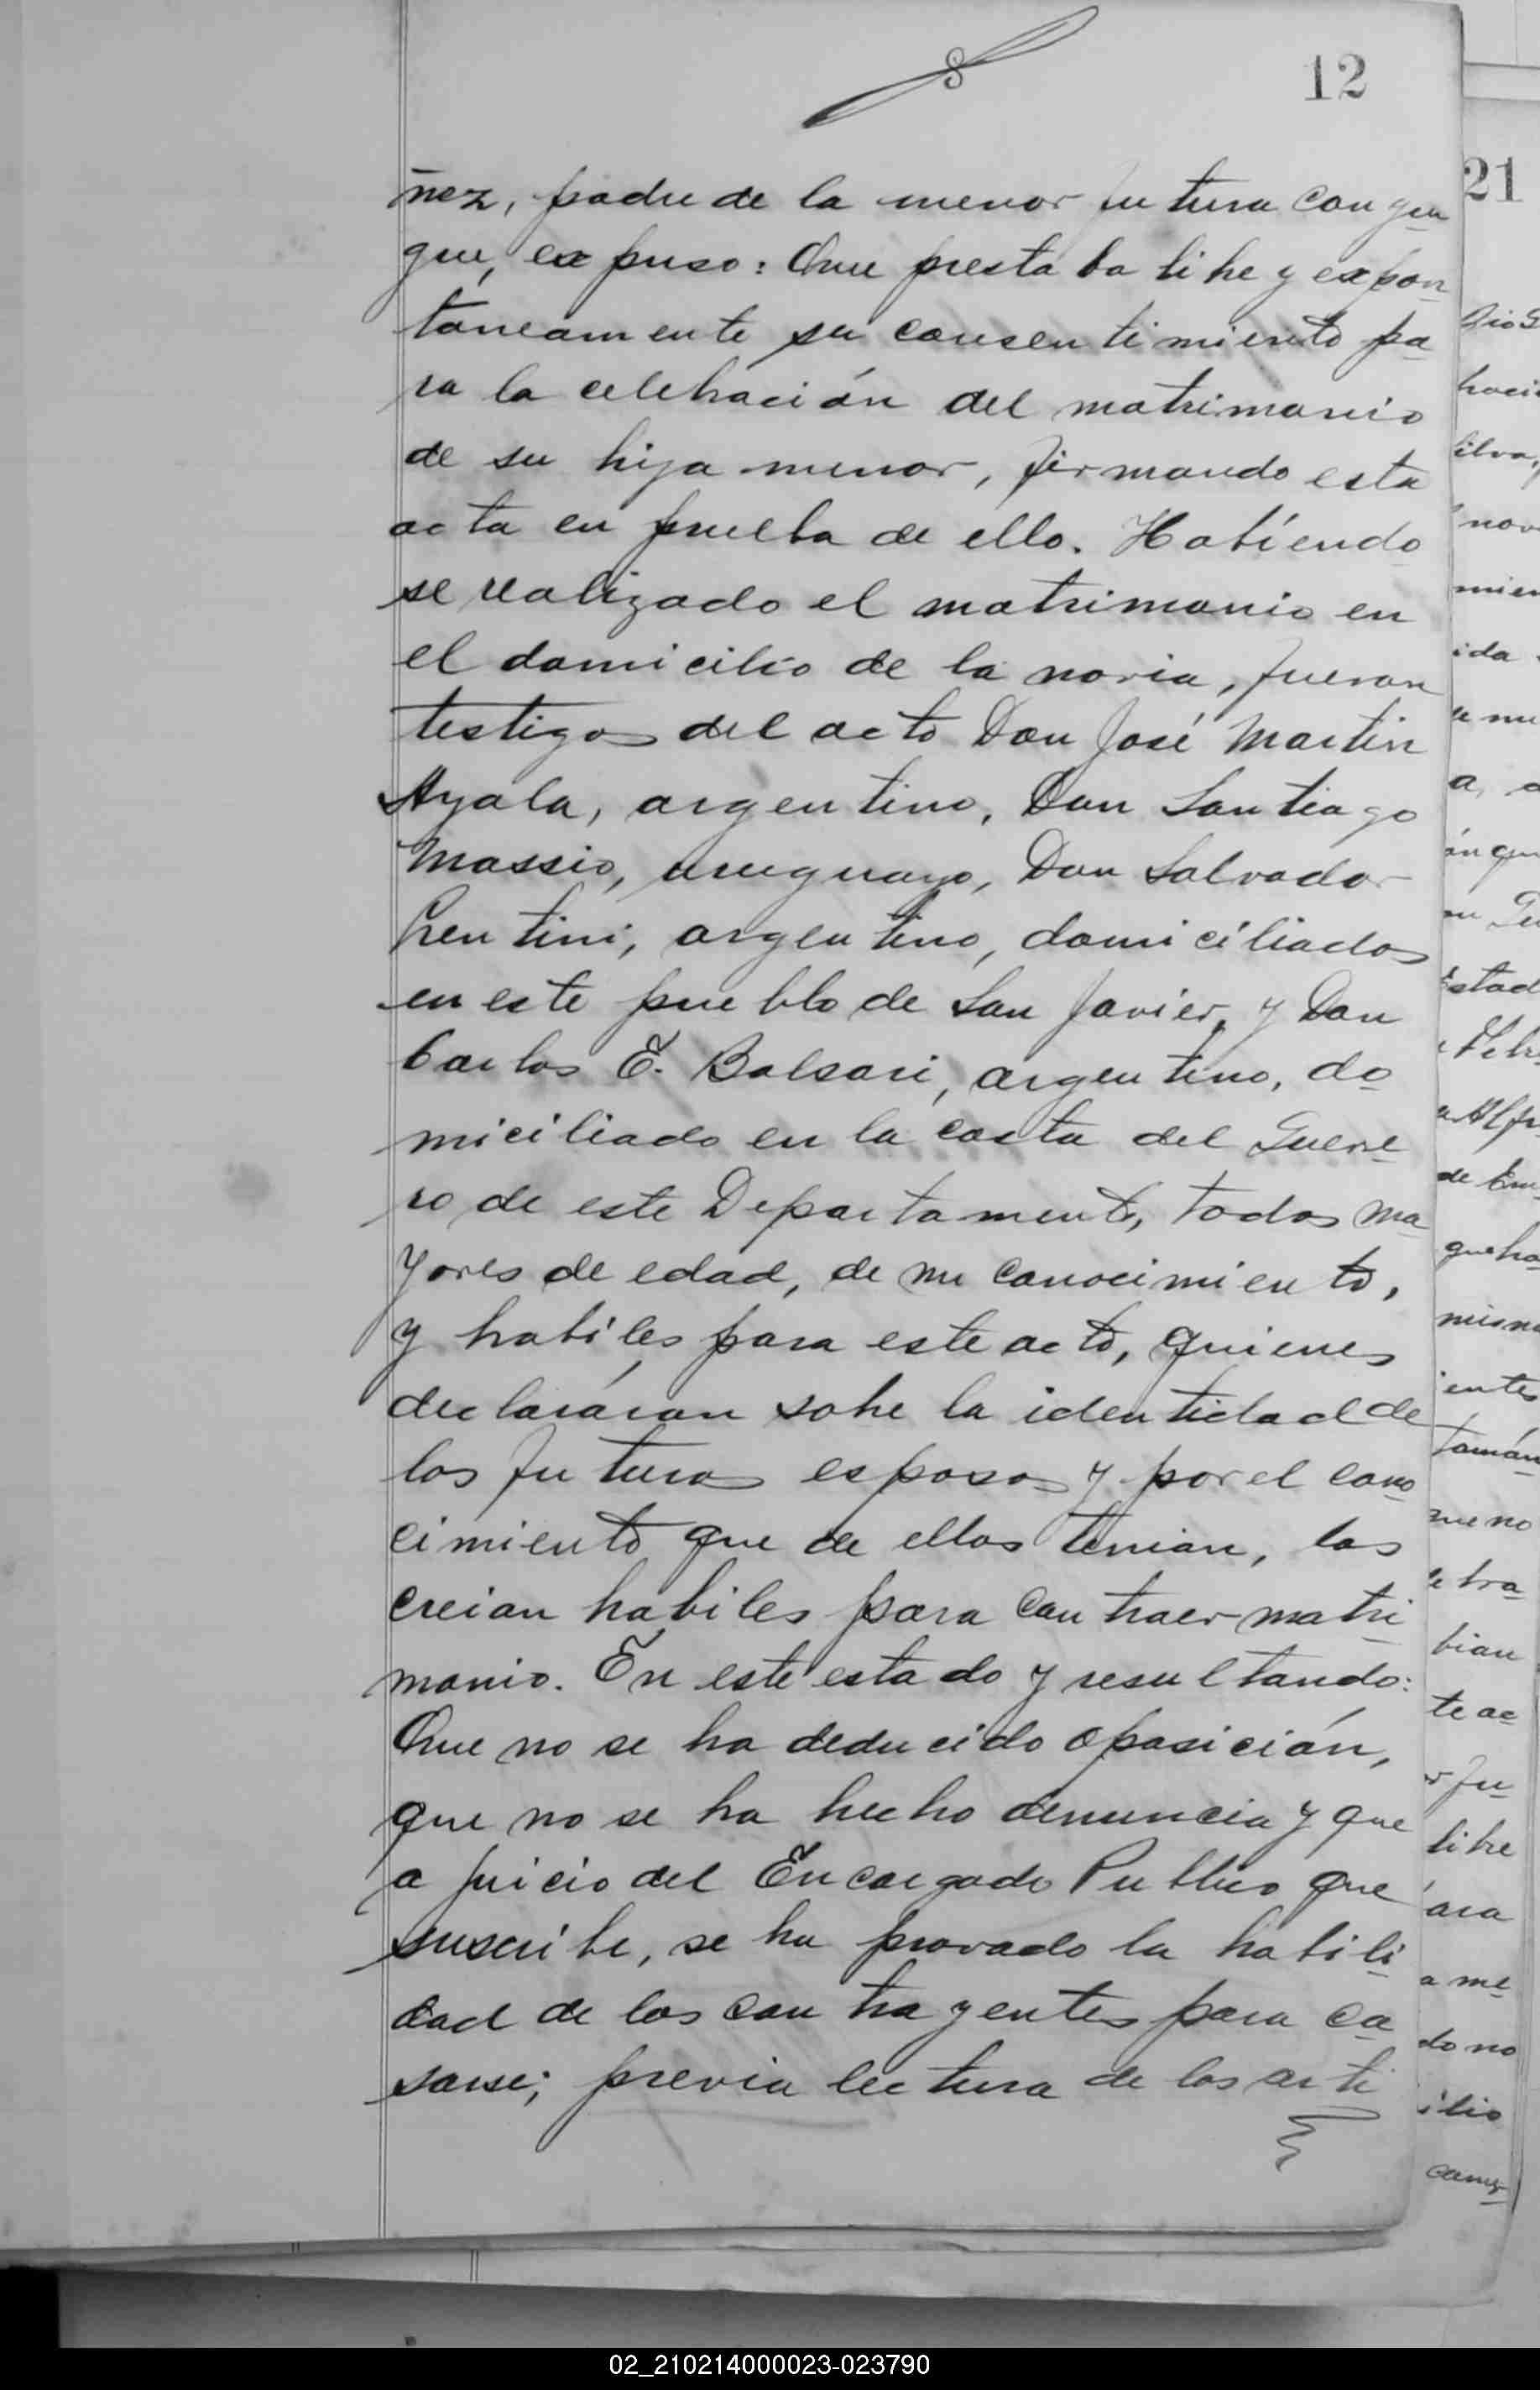 12
ñez, padre de la menor futura conyu
gue, expuso: Que prestaba libre y expon
taneamente su consentimiento pa
ra la celebración del matrimonio
de su hija menor, firmando esta
acta en prueba de ello. Habiendo
se realizado el matrimonio en
el domicilio de la novia, fueron
testigos del acto Don José Martin
Ayala, argentino, Don Santiago
Massio, uruguayo, Don Salvador
argentino, domiciliados
en este pueblo de San Javier, y Don
Carlos E. Balsari, argentino, do
miciliado en la costa del Guerre
ro de este Departamento, todos ma
yores de edad, de mi conocimiento,
y habiles para este acto, quienes
declararon sobre la identidad de
los futuros esposos y por el cono
cimiento que de ellos tenian, los
creian habiles para contraer matri
monio. En este estado y resultando:
Que no se ha deducido oposición,
que no se ha hecho denuncia y que
a juicio del Encargado Publico que
suscribe, se ha provado la habili
dad de los contrayentes para ca
sarse; previa lectura de los arti
21
02_210214000023-023790